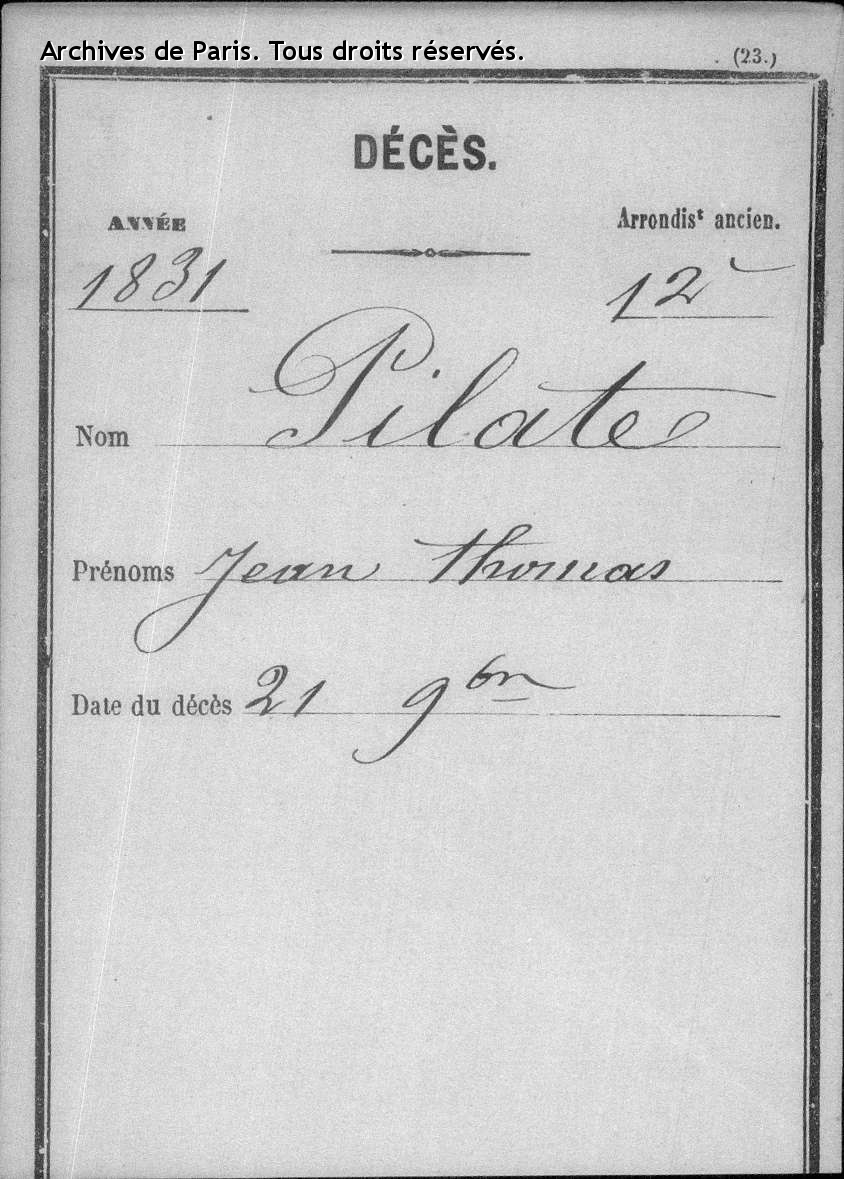 Archives de Paris. Tous droits réservés.
(23.)
DÉCÈS.
ANNÉE
Arrondist ancien.
1831
12
Nom Pilate
Prénoms Jean Thomas
Date du décès 21 9bre